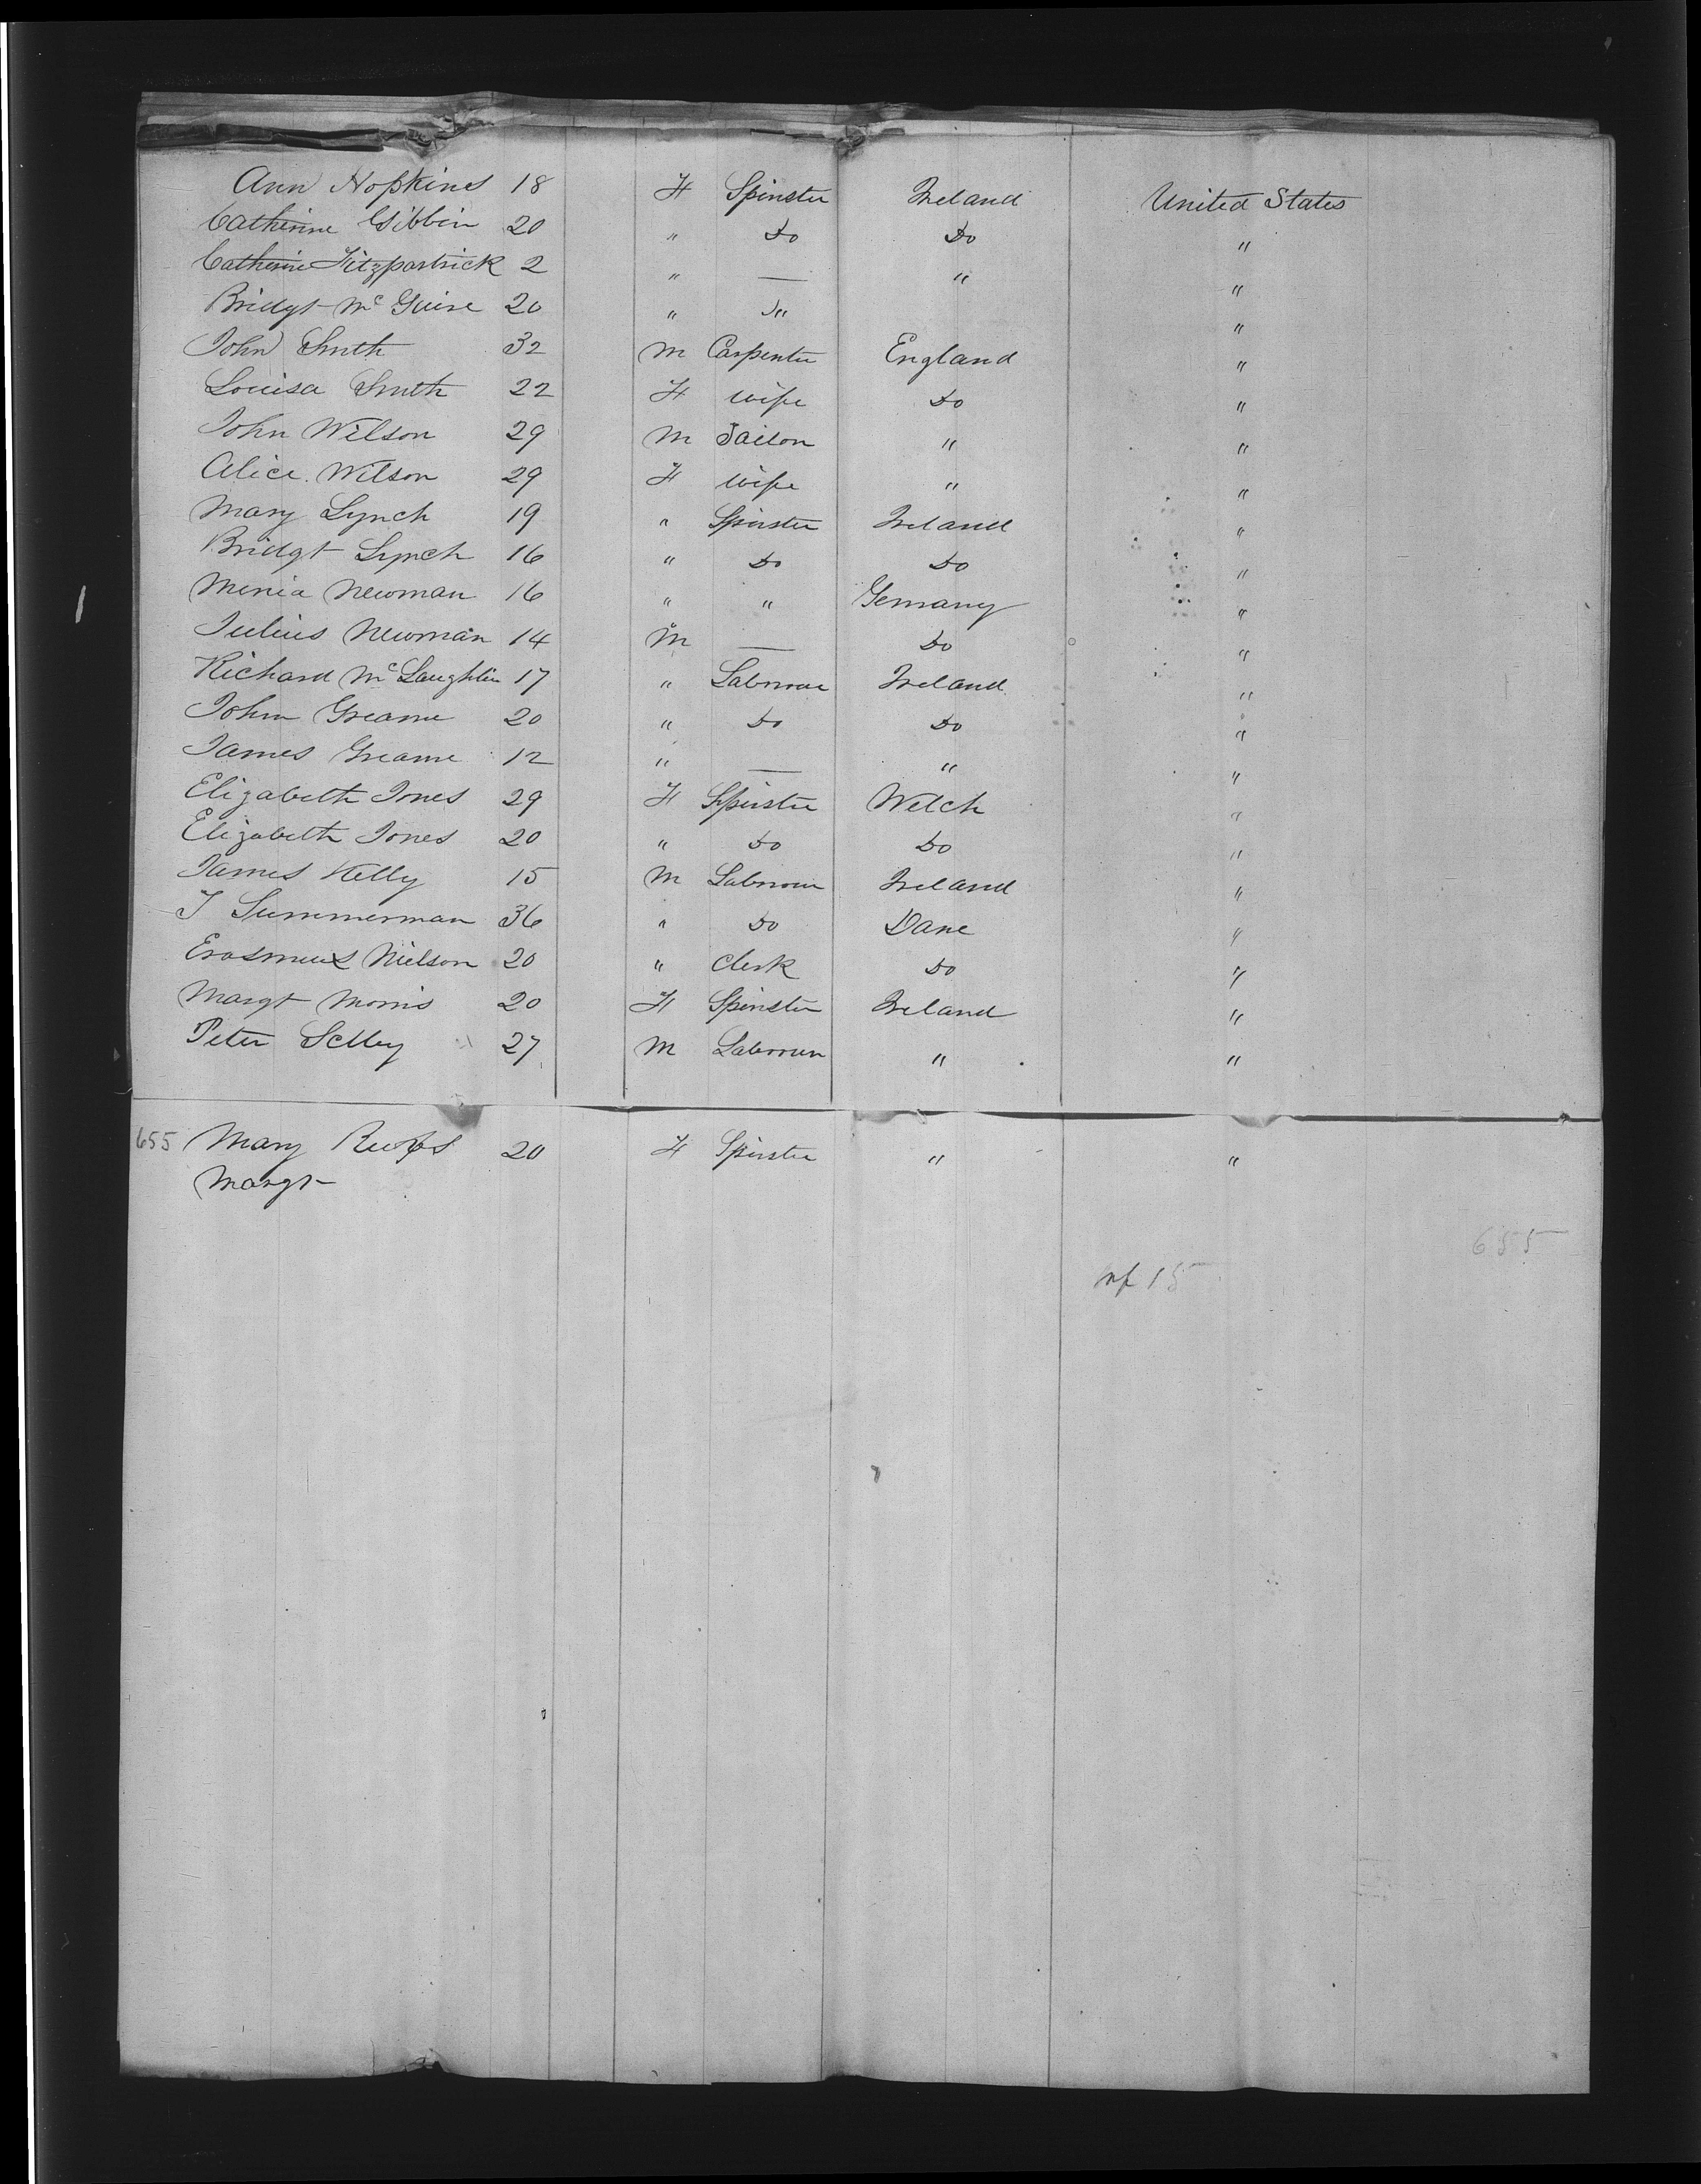 Ann Hopkins 18 F Spinster Ireland United States
Catherine Gibbin 20 " Do Do "
Catherine Fitzpartrick 2 " — " "
Bridgt McGuire 20 " Do "
John Smith 32 M Carpenter England "
Louisa Smith 22 F wife Do "
John Wilson 29 M Tailor " "
Alice Wilson 29 F wife " "
Mary Lynch 19 " Spinster Ireland "
Bridgt Lynch 16 " Do Do "
Menia Newman 16 " " Gemany "
Julius Newman 14 M — Do "
Richard McLaughlin 17 " Labrour Ireland "
John Greame 20 " Do Do "
James Greame 12 " — " "
Elizabeth Jones 29 F Spinster Welch "
Elizabeth Jones 20 " Do Do "
James Kelly 15 M Labrour Ireland "
J Summerman 36 " Do Dane "
Erasmus Nielson 20 " Clerk Do "
Margt Morris 20 F Spinster Ireland "
Peter Selley 27 M Labrour " "
655 Mary 20 F Spinster " "
Margt
655
15